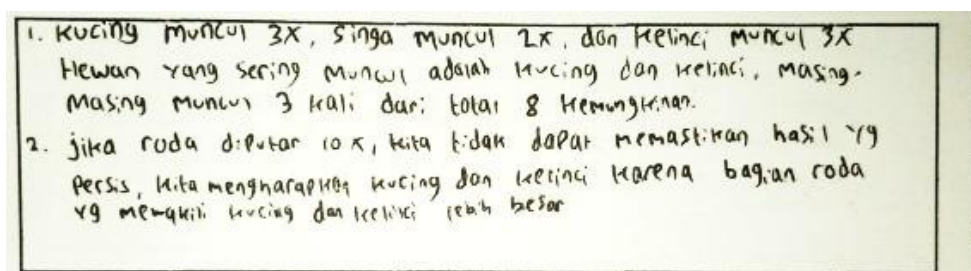 1. Kucing muncul 3x, singa muncul 2x, dan kelinci muncul 3x
Hewan yang sering muncul adalah kucing dan kelinci, masing-
masing muncul 3 kali dari total 8 kemungkinan.
2. jika roda diputar 10x, kita tidak dapat memastikan hasil yg
persis, kita mengharapkan kucing dan kelinci karena bagian roda
yg mewakili kucing dan kelinci lebih besar